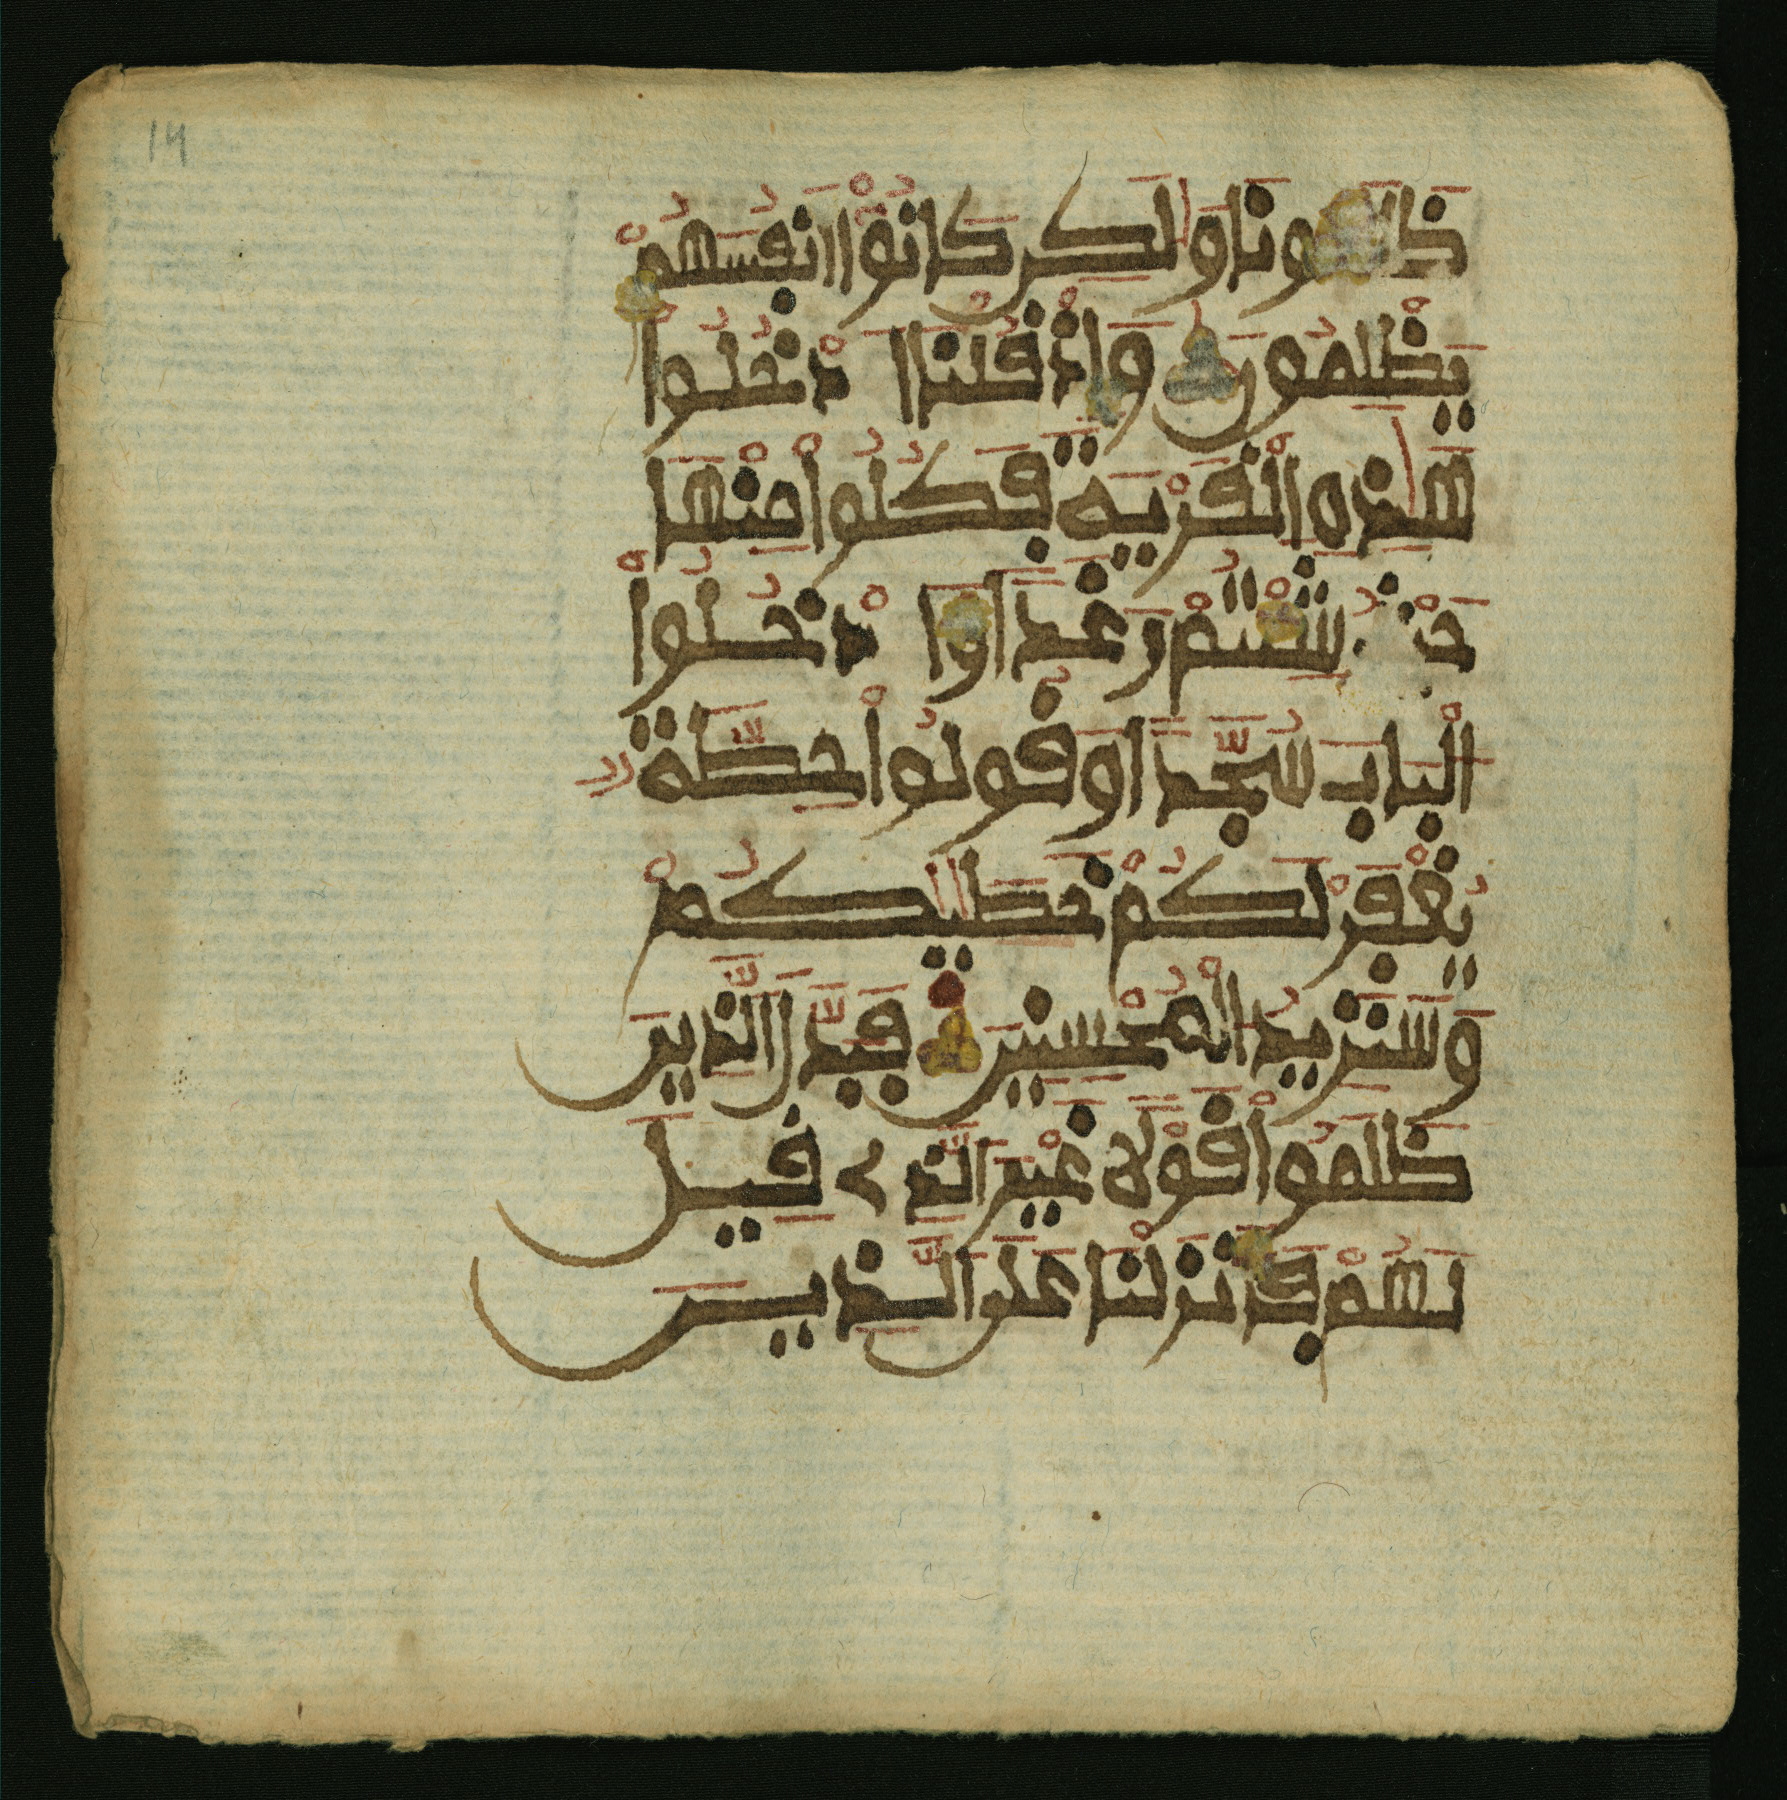 14
ظلمونا ولكن كانوا انفسهم
يظلمون واذ قلنا ادخلوا
هذه القرية فكلوا منها
حيث شئتم رغدا وادخلوا
الباب سجدا وقولوا حطة
يغفر لكم خطيكم
وسنزيد المحسنين فبدل الذين
ظلموا قولا غير الذي قيل
لهم فانزلنا على الذين